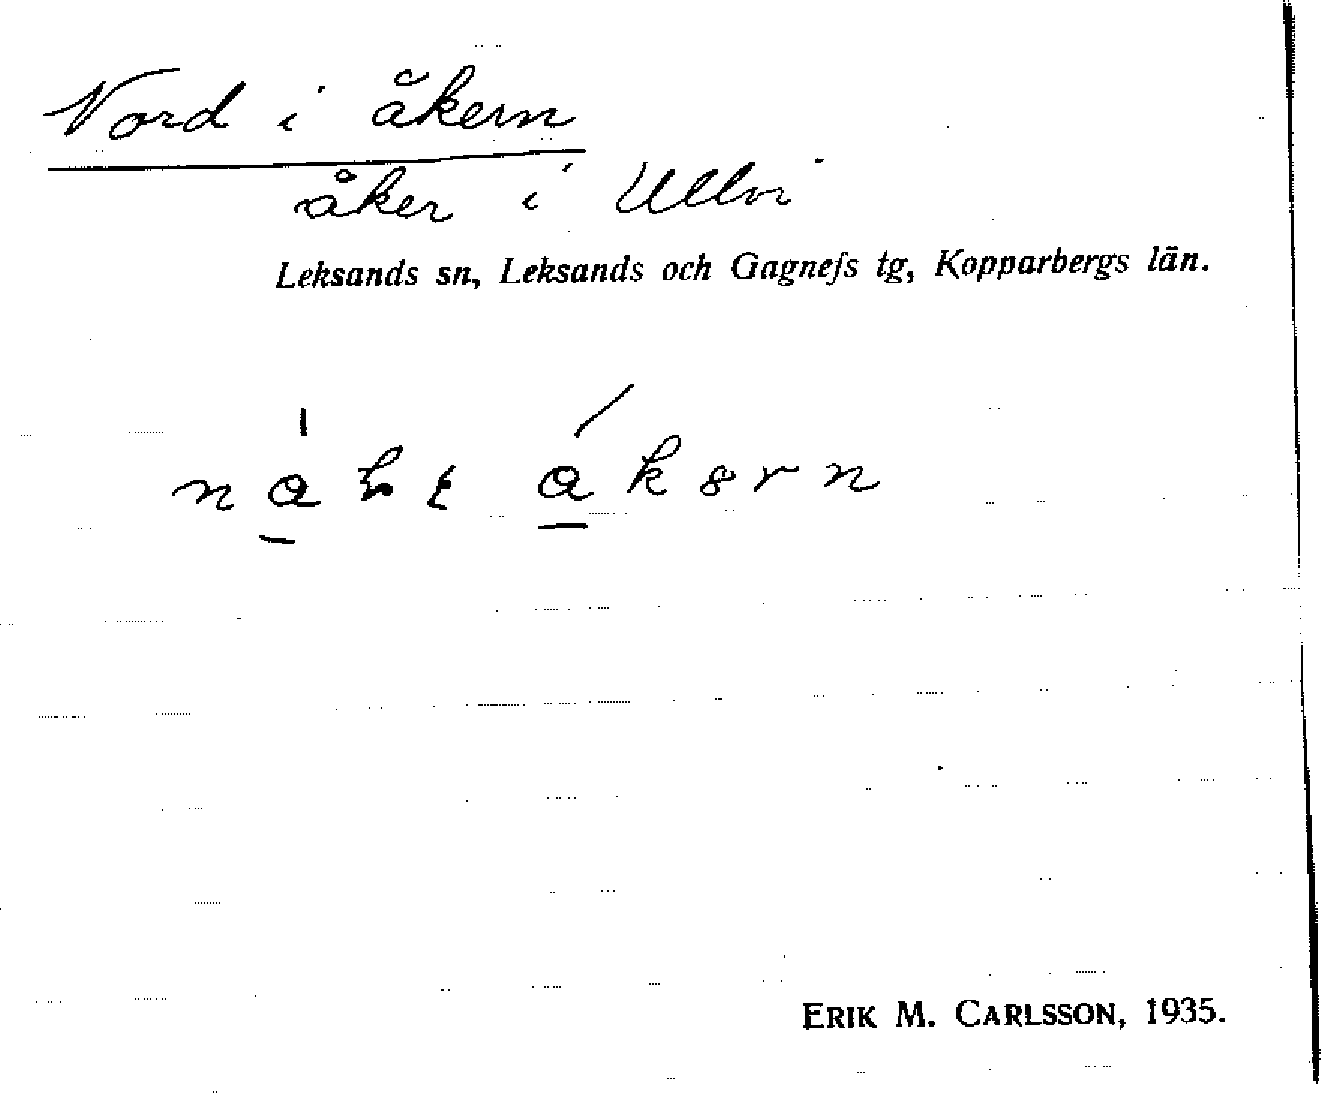 Nord i åkern
åker i Ullvi
Leksands sn, Leksands och Gagnefs tg, Kopparbergs län.
ERIK M. CARLSSON, 1935.